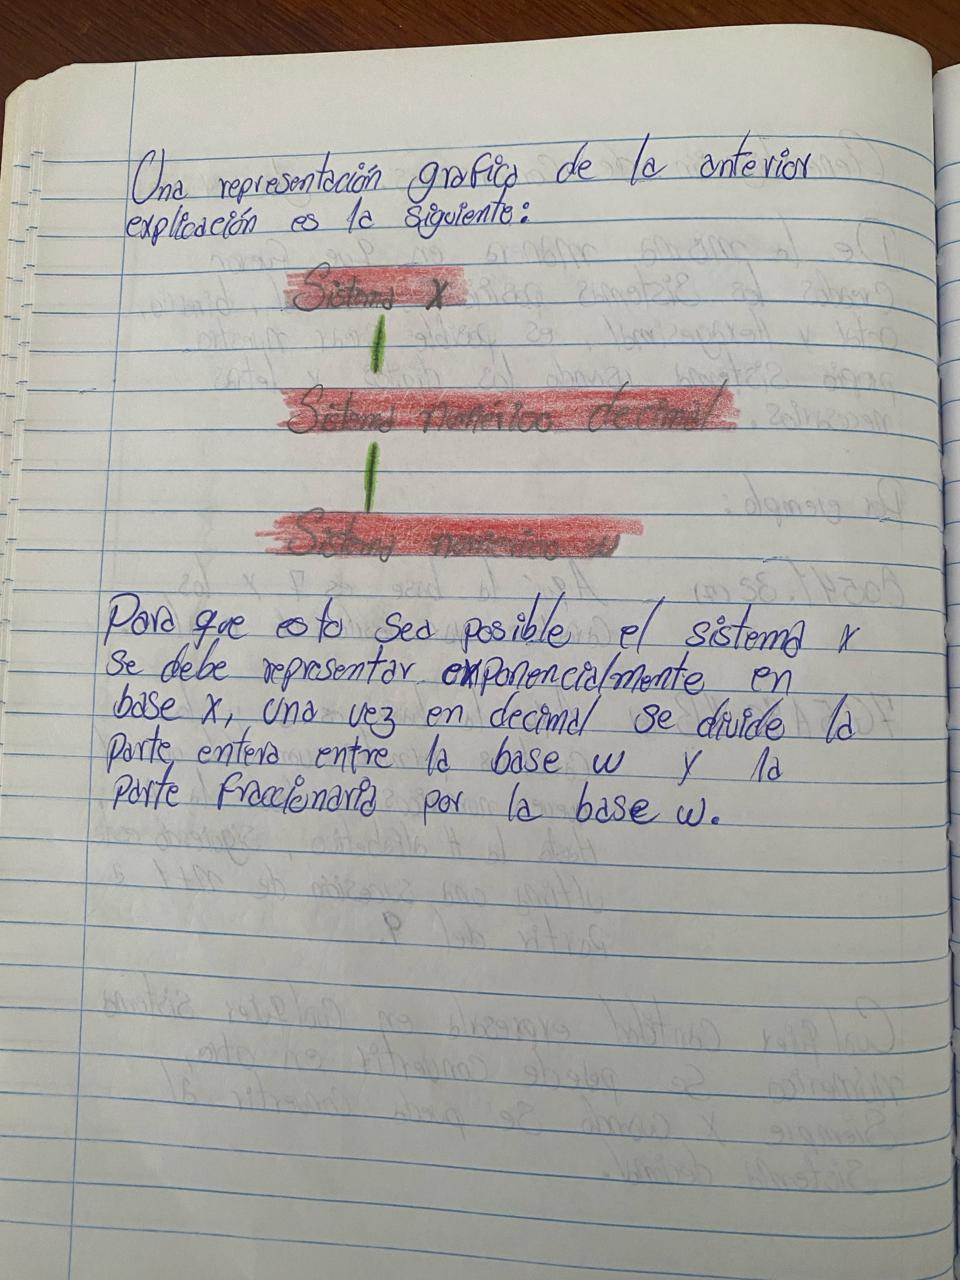 Una representación grafica de la anterior
explicación es la siguiente:
Sistema X
Sistema numérico decimal
Sistema numérico w
Para que esto sea posible el sistema x
se debe representar exponencialmente en
base x, una vez en decimal se divide la
parte entera entre la base w y la
parte fraccionaria por la base w.